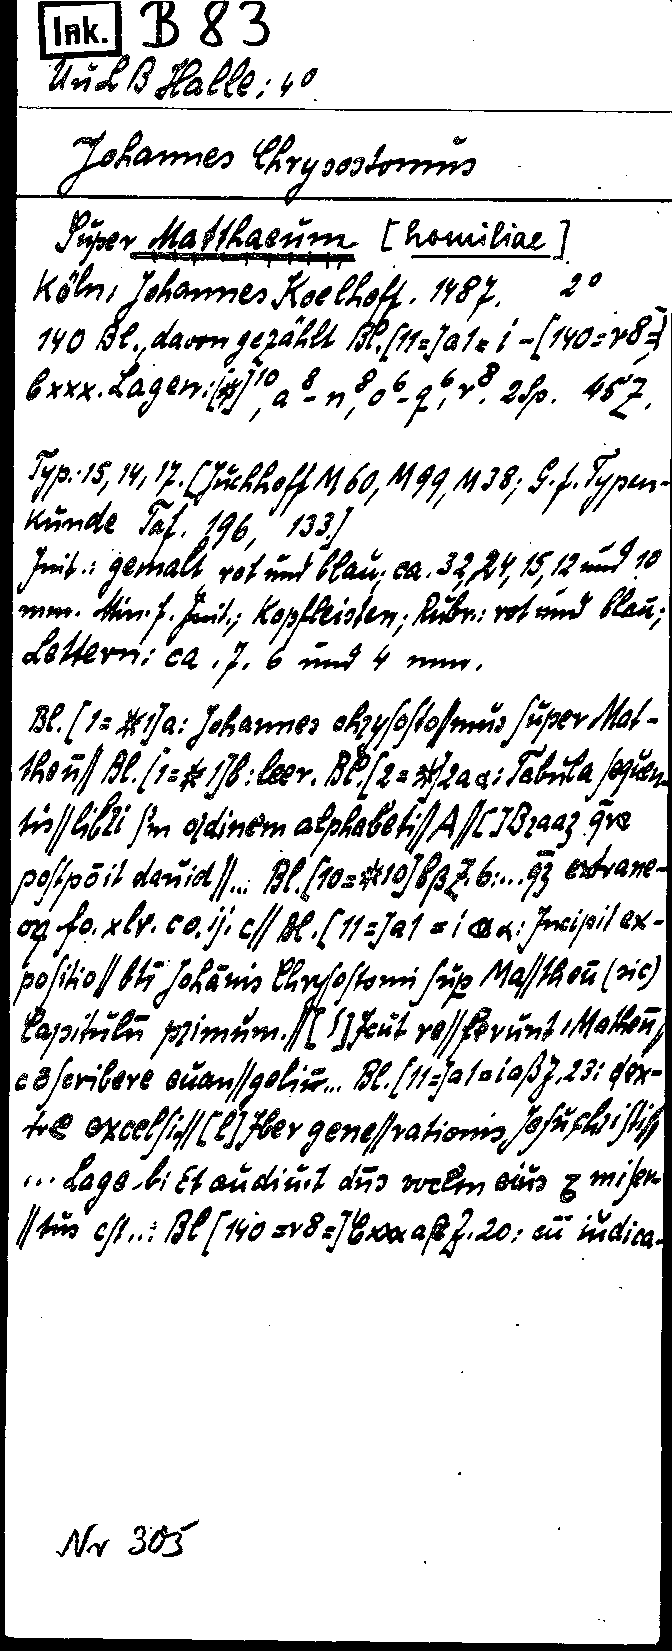 Ink. B 83
UuLB Halle: 4°
Johannes Chrysostomus
Super Matthaeum [homiliae]
Köln, Johannes Koelhoff. 1487. 2°
140 Bl., davon gezählt Bl.[11=]a1=i-[140=r8=]
lxxx. Lagen:[*]10, a8-n8, o6-q6, r8. 2Sp. 45Z.
Typ.: 15, 14, 17. [Juchhoff M60, M99, M38; G.f. Typen-
kunde Taf. 196, 133.]
Init.: gemalt rot und blau; ca. 32, 24, 15, 12 und 10
mm. Min. f. Init.; Kopfleisten; Rubr.: rot und blau;
Lettern: ca. 7. 6 und 4 mm.
Bl.[1=*1]a: Johannes chrysostosmus super Mat-
theū// Bl.[1=*1]b: leer. Bl.[2=*]2aα: Tabula sequen-
tis//libri sm ordinem alphabeti//A//[]Braaz
postpōit dauid//... Bl.[10=*10]bβ Z.6:... extrane-
fo. xlv. co. ij. c// Bl.[11=]a1=i aα: Incipit ex-
positio// bti Johānis Chrysostomi sup Ma//theū (sic)
Capitulū primum.//[S]Icut re//ferunt Matheū/
scribere euan//geliū... Bl.[11=]a1=iaβ Z.23: dex-
tre excelsi.//[l]Iber gene//rationis Jesu
... Lage b: Et audiuit dūs vocem eius misen-
//tus est...: Bl[140=r8=]lxxx aβ Z.20: cū iudica-
Nr 305